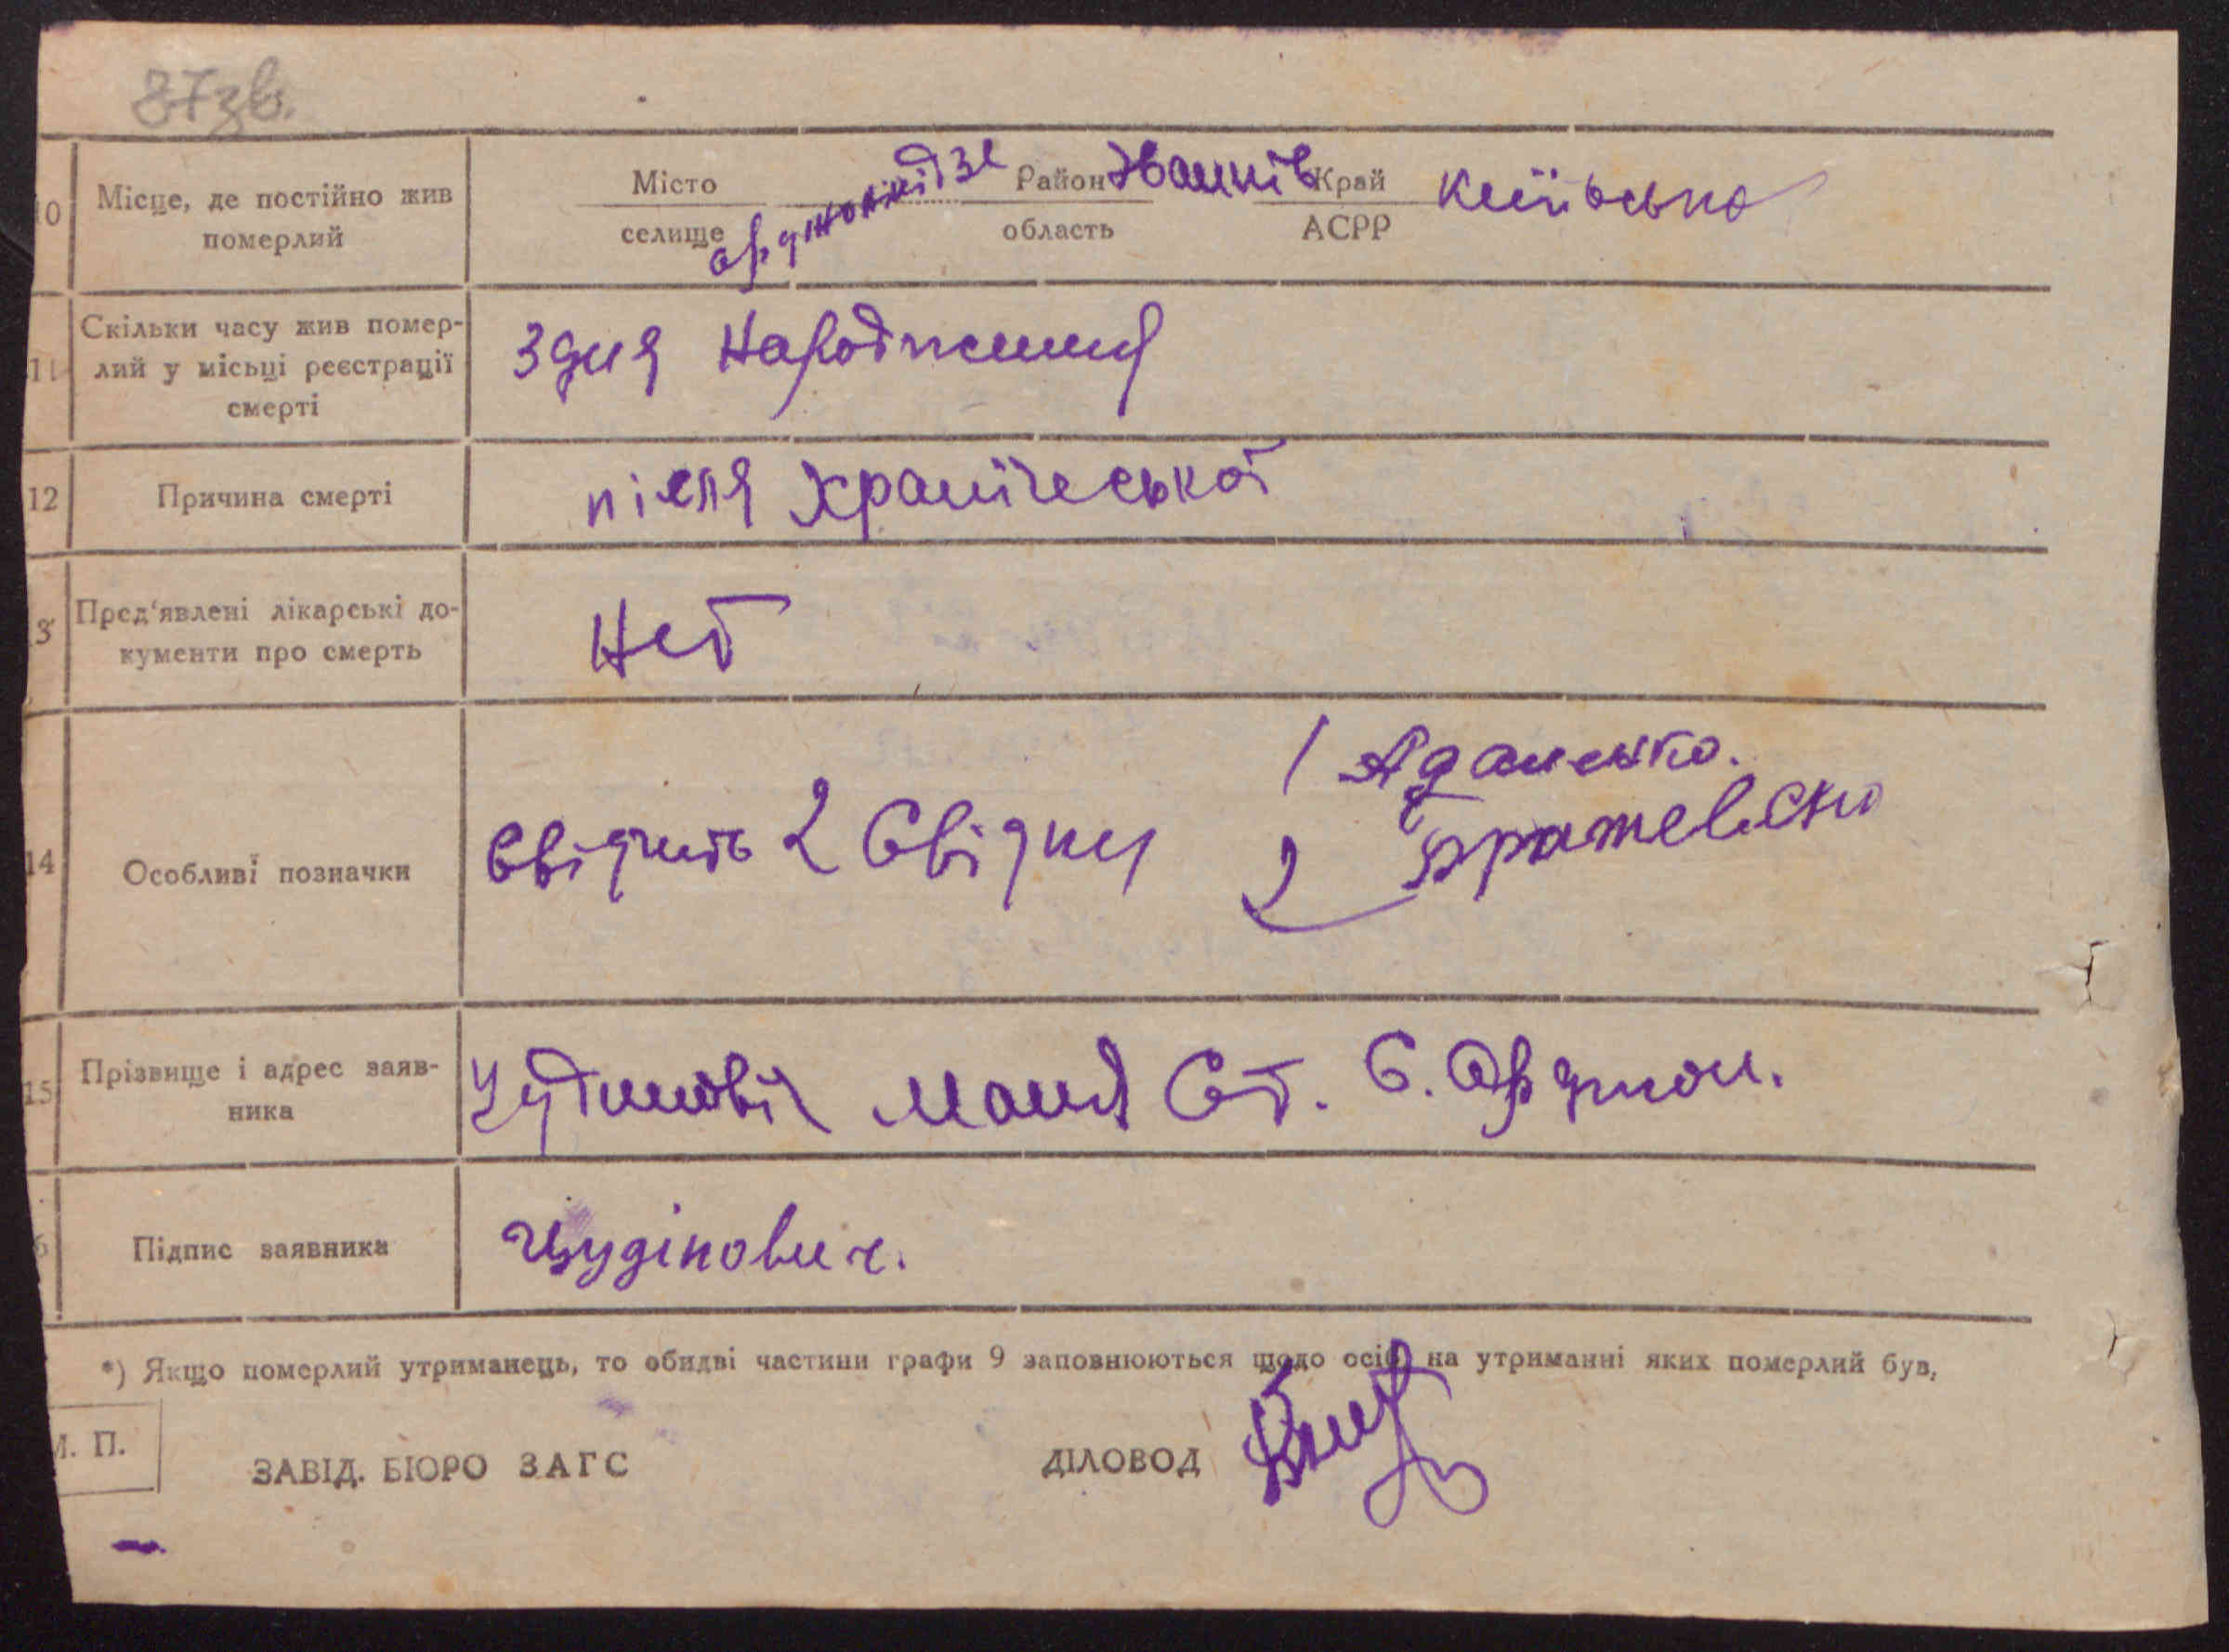 87зв.
10 Місце, де постійно жив померлий
Місто селище Орджонікідзе Район область Іванків Край АСРР Київська
11 Скільки часу жив помер-
лий у місьці реєстрації
смерті
З дня народження
12 Причина смерті
після Хранічеської
3 Пред'явлені лікарські до-
кументи про смерть
Нет
14 Особливі позначки
Свідчить 2 Свідки
1 Адаменко.
2
15 Прізвище і адрес заяв-
ника
Чудиновіч Маня Ст. С. Орджон.
6 Підпис заявника
Чудінович.
*) Якщо померлий утриманець, то обидві частини графи 9 заповнюються щодо осіб, на утриманні яких померлий був,
М. П.
ЗАВІД. БЮРО ЗАГС
ДІЛОВОД